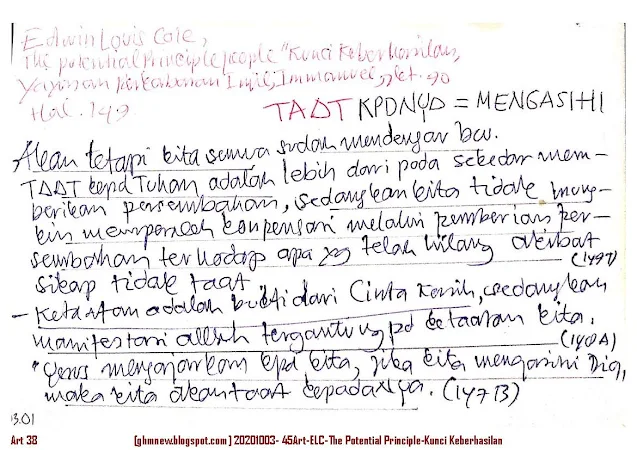 Edwin Louis Cole,
The potential Principle people "Kunci Keberhasilan,
Yayasan Perkabaran Injil, Immanuel, 90
Hal. 149
TAAT KPDNYA = MENGASIHI
Akan tetapi kita semua sudah mendengar bw.
TAAT kepd Tuhan adalah lebih dari pada sekedar mem-
berikan persembahan, sedangkan kita tidak mung-
kin memperoleh konpensasi melalui pemberian per-
sembahan terhadap apa yg telah hilang akibat
sikap tidak taat.
- Ketaatan adalah bukti dari Cinta Kasih, sedangkan
manifestasi Allah tergantung pd ketaatan kita.
"Yesus mengajarkan kpd kita, jika kita mengasihi Dia,
maka kita akan taat kepadaNya. (147B)
13.01
Art 38 [ghmnew.blogspot.com] 20201003- 45Art-ELC-The Potential Principle-Kunci Keberhasilan